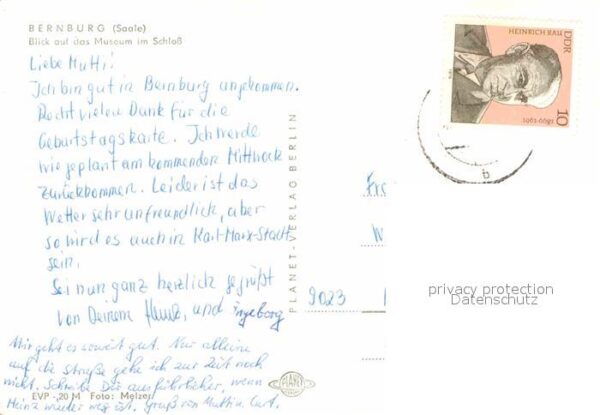 BERNBURG (Saale)
Blick auf das Museum im Schloß
Liebe Mutti!
Ich bin gut in Bernburg angekommen.
Recht vielen Dank für die
Geburtstagskarte. Ich werde
wie geplant am kommenden Mittwoch
zurückkommen. Leider ist das
Wetter sehr unfreundlich, aber
so wird es auch in Karl-Marx-Stadt
sein.
Sei nun ganz herzlich gegrüßt
von Deinem Heinz, und Ingeborg
Mir geht es soweit gut. Nur alleine
auf die Straße gehe ich zur Zeit noch
nicht. Schreibe Dir ausführlicher, wenn
Heinz wieder weg ist. Gruß von Mutti u. Curt.
EVP -,20 M Foto: Melzer
PLANET-VERLAG BERLIN
PLANET
HEINRICH RAU
DDR
10
1899-1961
b
Fr
W
9023
privacy protection
Datenschutz